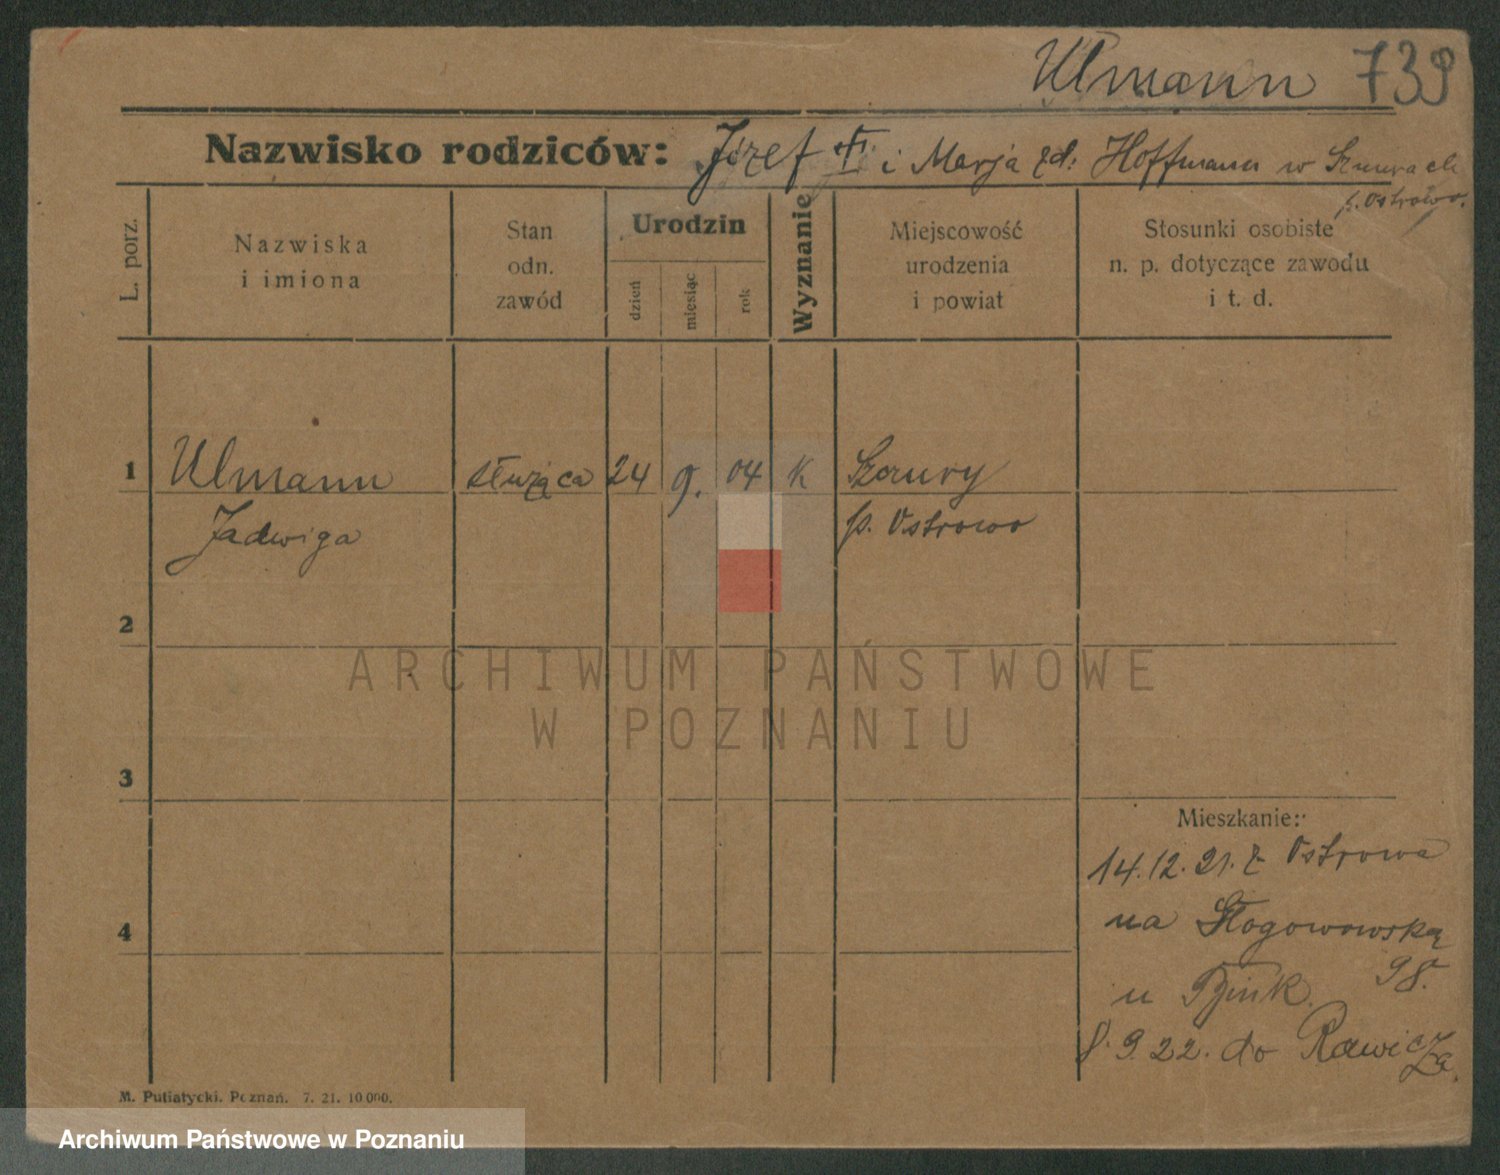 Ulmann 739
Nazwisko rodziców: Józef † i Marja zd: Hoffmann w
p. Ostrowo.
L. porz.
Nazwiska
i imiona
Stan
odn.
zawód
Urodzin
dzień
miesiąc
rok
Wyznanie
Miejscowość
urodzenia
i powiat
Stosunki osobiste
n. p. dotyczące zawodu
i t. d.
1 Ulmann służąca 24 9. 04 K Szczury
Jadwiga p. Ostrowo
2
ARCHIWUM PAŃSTWOWE
W POZNANIU
3
Mieszkanie:
14.12.21. z Ostrowa
4
na
98.
u
8. 9 22. do Rawicza.
M. Putiatycki. Poznań. 7. 21. 10 000.
Archiwum Państwowe w Poznaniu